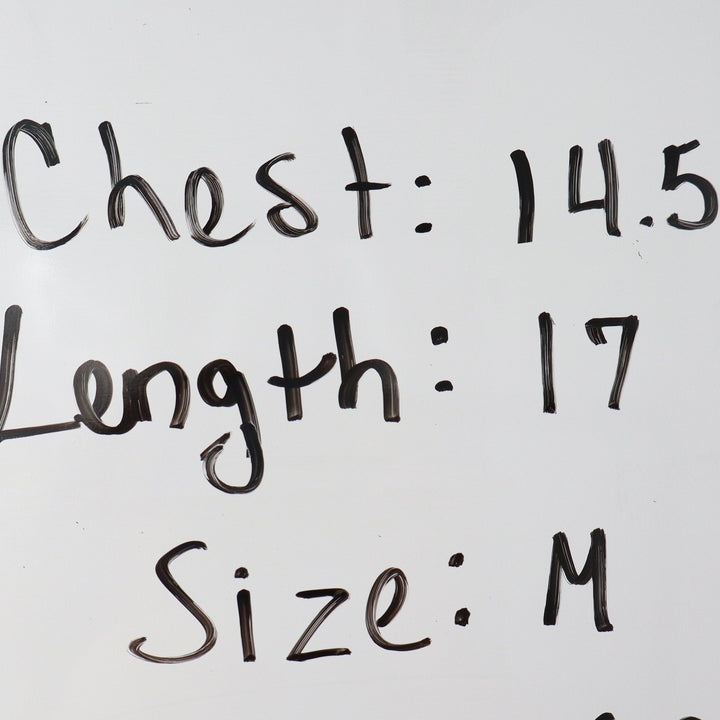 Chest: 14.5
Length: 17
Size: M